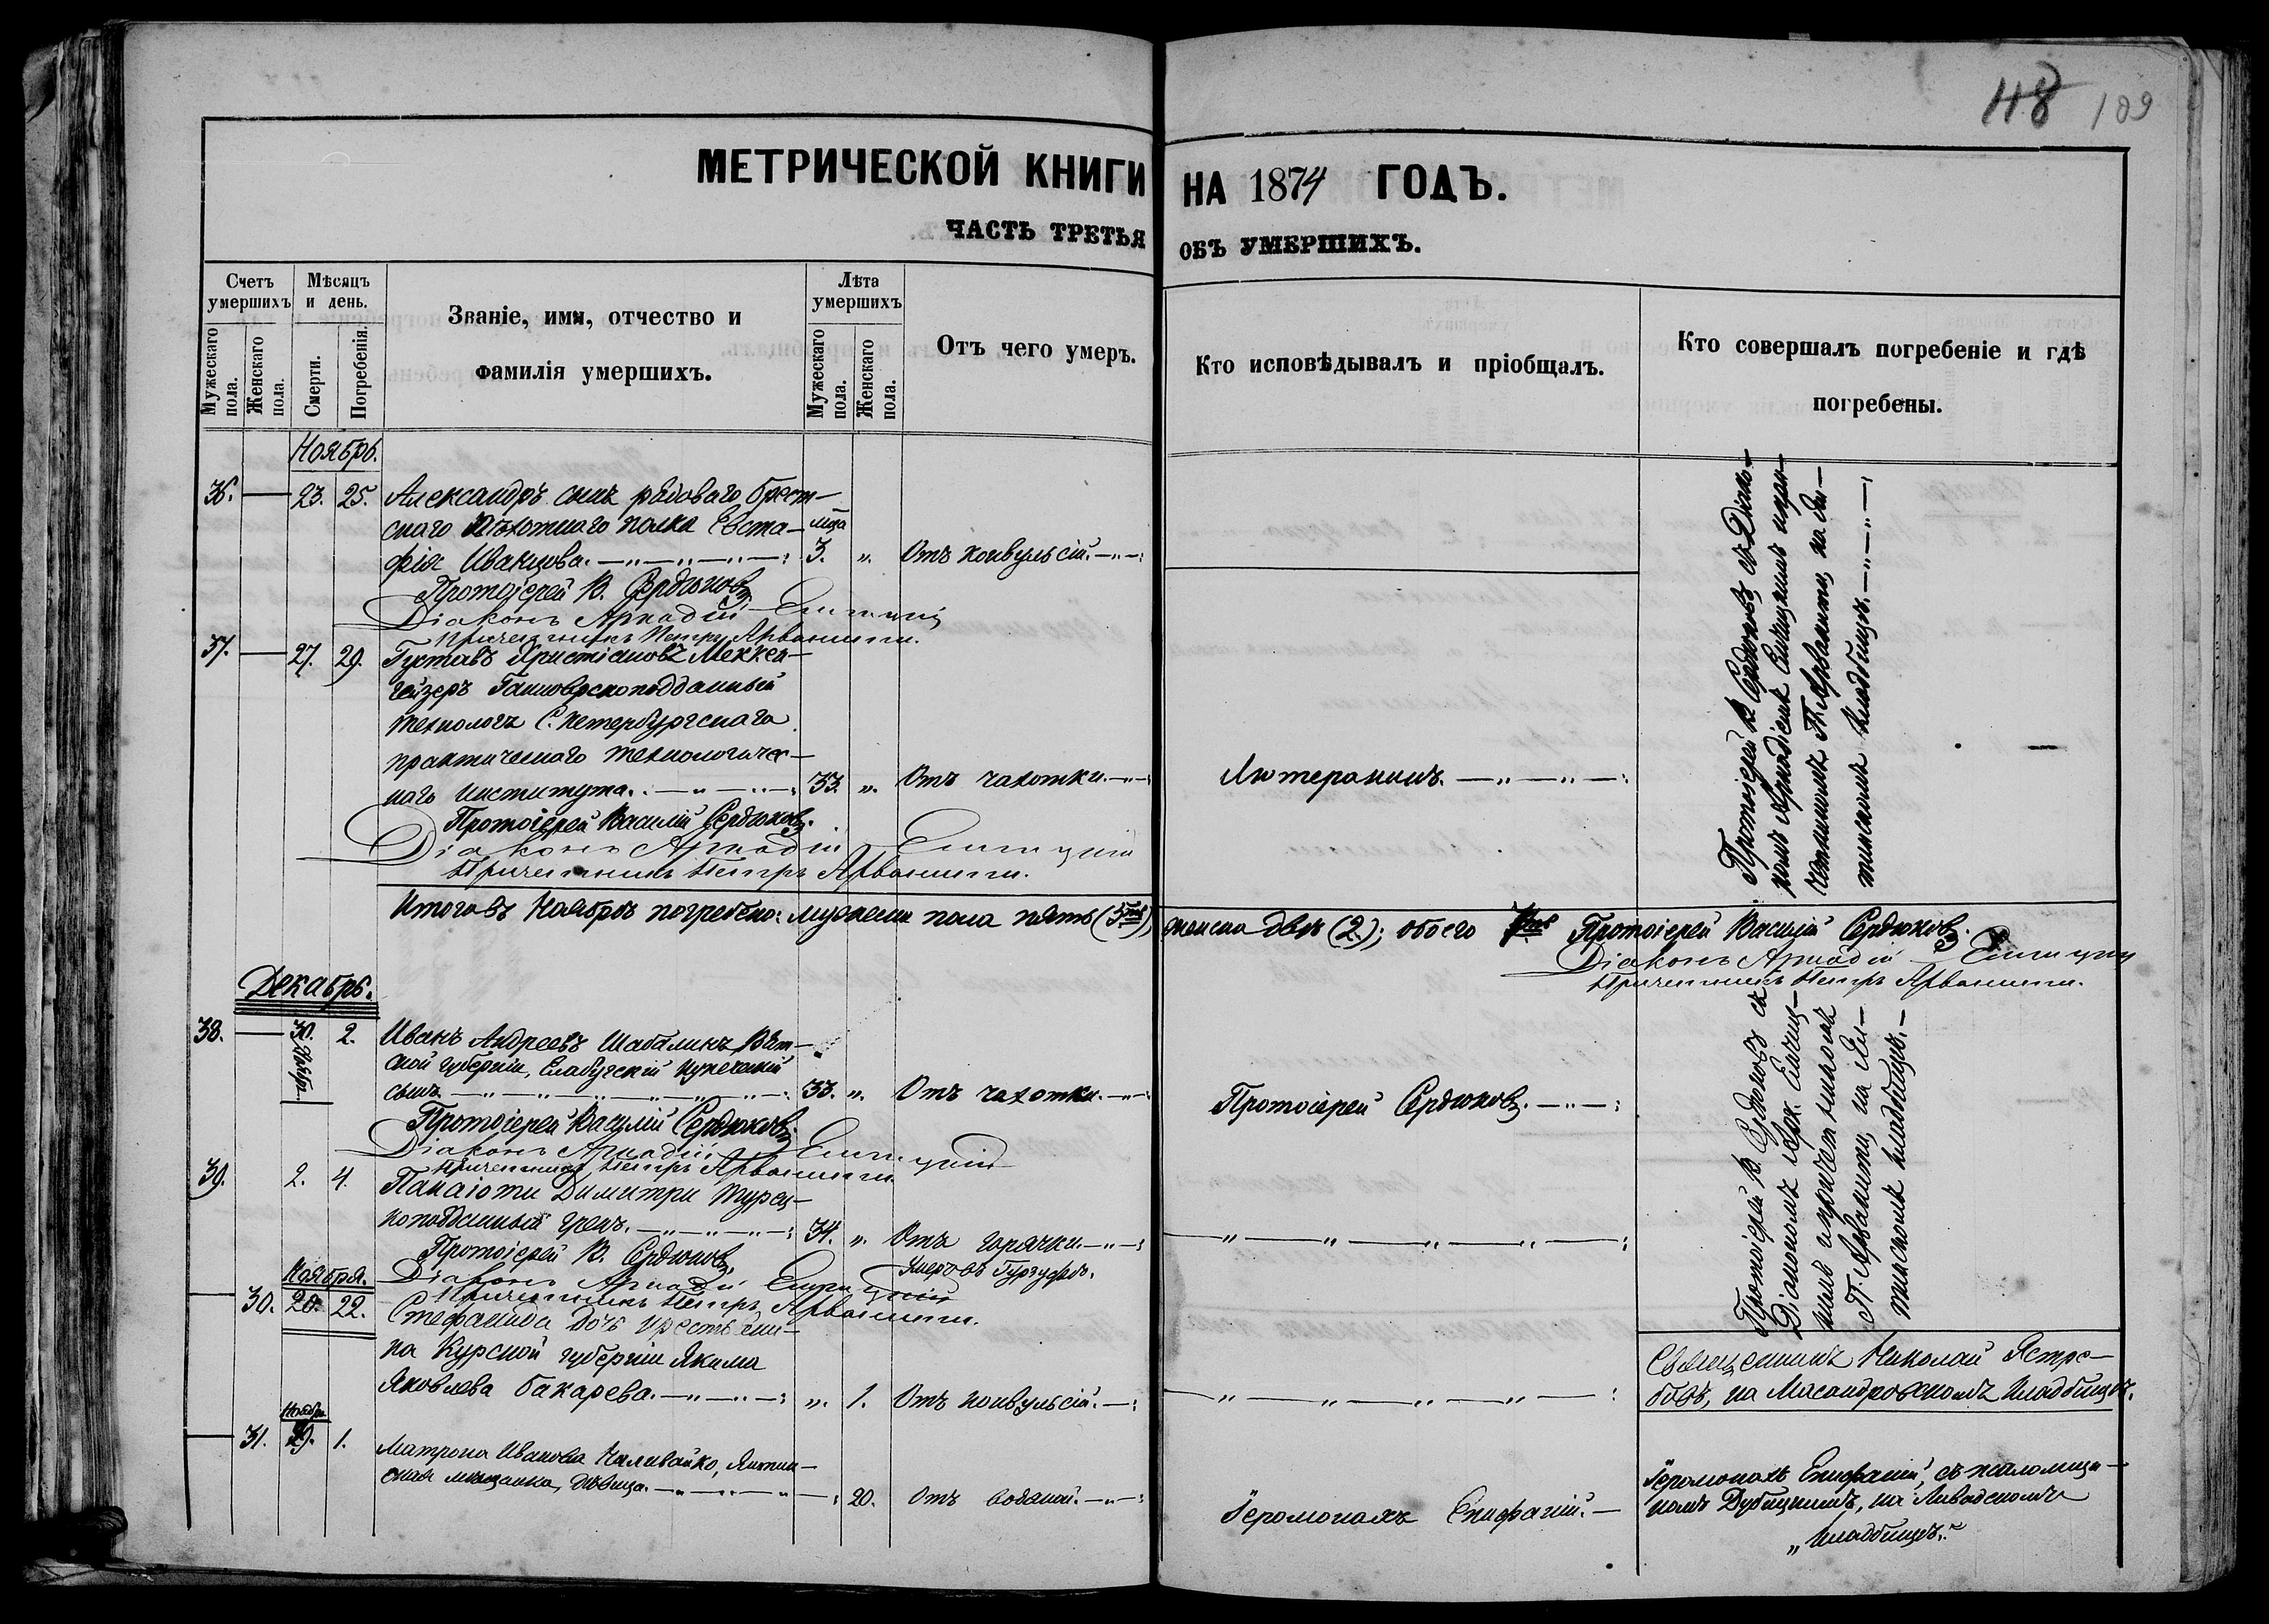 118 109
МЕТРИЧЕСКОЙ КНИГИ НА 1874 ГОДЪ.
ЧАСТЬ ТРЕТЬЯ ОБЪ УМЕРШИХЪ.
Счетъ умершихъ
Мужескаго пола.
Женскаго пола.
Мѣсяцъ и день.
Смерти.
Погребенія.
Званіе, имя, отчество и
фамилія умершихъ.
Лѣта умершихъ
Мужескаго пола.
Женскаго пола.
Отъ чего умеръ.
Кто исповѣдывалъ и пріобщалъ.
Кто совершалъ погребеніе и гдѣ
погребены.
Ноябрь.
36. — 23. 25. Александръ сынъ рядоваго Брест-
скаго Пѣхотнаго полка Евста-
фія Иванцова. 3. мѣся „ Отъ конвульсій.
Протоіерей В. Сердюковъ
Діаконъ Аркадій
Причетникъ Петръ Арванити.
37. — 27. 29. Густавъ Христіановъ Меккен-
гейзеръ Ганноверскоподданный
технологъ С. Петербургскаго
практическаго технологичес-
каго института. 33. „ Отъ чахотки. Лютеранинъ.
Протоіерей Василій Сердюковъ.
Діаконъ Аркадій
Причетникъ Петръ Арванити.
Протоіерей В. Сердюковъ съ Діако-
номъ Аркадіемъ и при-
четникомъ П. Арванити, на Ял-
тинскомъ кладбищѣ.
Итого въ Ноябрѣ погребено: мужеска пола пять (5ть), женска двѣ (2); обоего 7мь Протоіерей Василій Сердюковъ.
Діаконъ Аркадій
Причетникъ Петръ Арванити.
Декабрь.
38. — 30. Ноябр. 2. Иванъ Андреевъ Шабалинъ, Вят-
ской губерніи, Елабугскій купеческій
сынъ. 33. „ Отъ чахотки. Протоіерей Сердюковъ.
Протоіерей Василій Сердюковъ.
Діаконъ Аркадій
Причетникъ Петръ Арванити
39. 2. 4. Панаіоти Димитри Турец-
коподданный грекъ. 34. „ Отъ горячки.
Умеръ въ Гурзуфѣ.
Протоіерей В. Сердюковъ.
Діаконъ Аркадій
Причетникъ Петръ Арванити.
Протоіерей В. Сердюковъ съ
Діакономъ Арк.
и причетникомъ
П. Арванити, на Ял-
тинскомъ кладбищѣ.
Ноября.
— 30. 20. 22. Стефанида дочь крестьяни-
на Курской губерніи Якима
Яковлева Бакарева. „ 1. Отъ конвульсій.
Священникъ Николай Ястре-
бовъ, на Масандровскомъ кладбищѣ.
Ноября
— 31. 29. 1. Матрона Иванова Наливайко, Ялтин-
ская мѣщанка, дѣвица. 20. Отъ водяной. Іеромонахъ Епифаній.
Іеромонахъ Епифаній, съ псаломщи-
комъ Дубицкимъ, на Ливадскомъ
кладбищѣ.